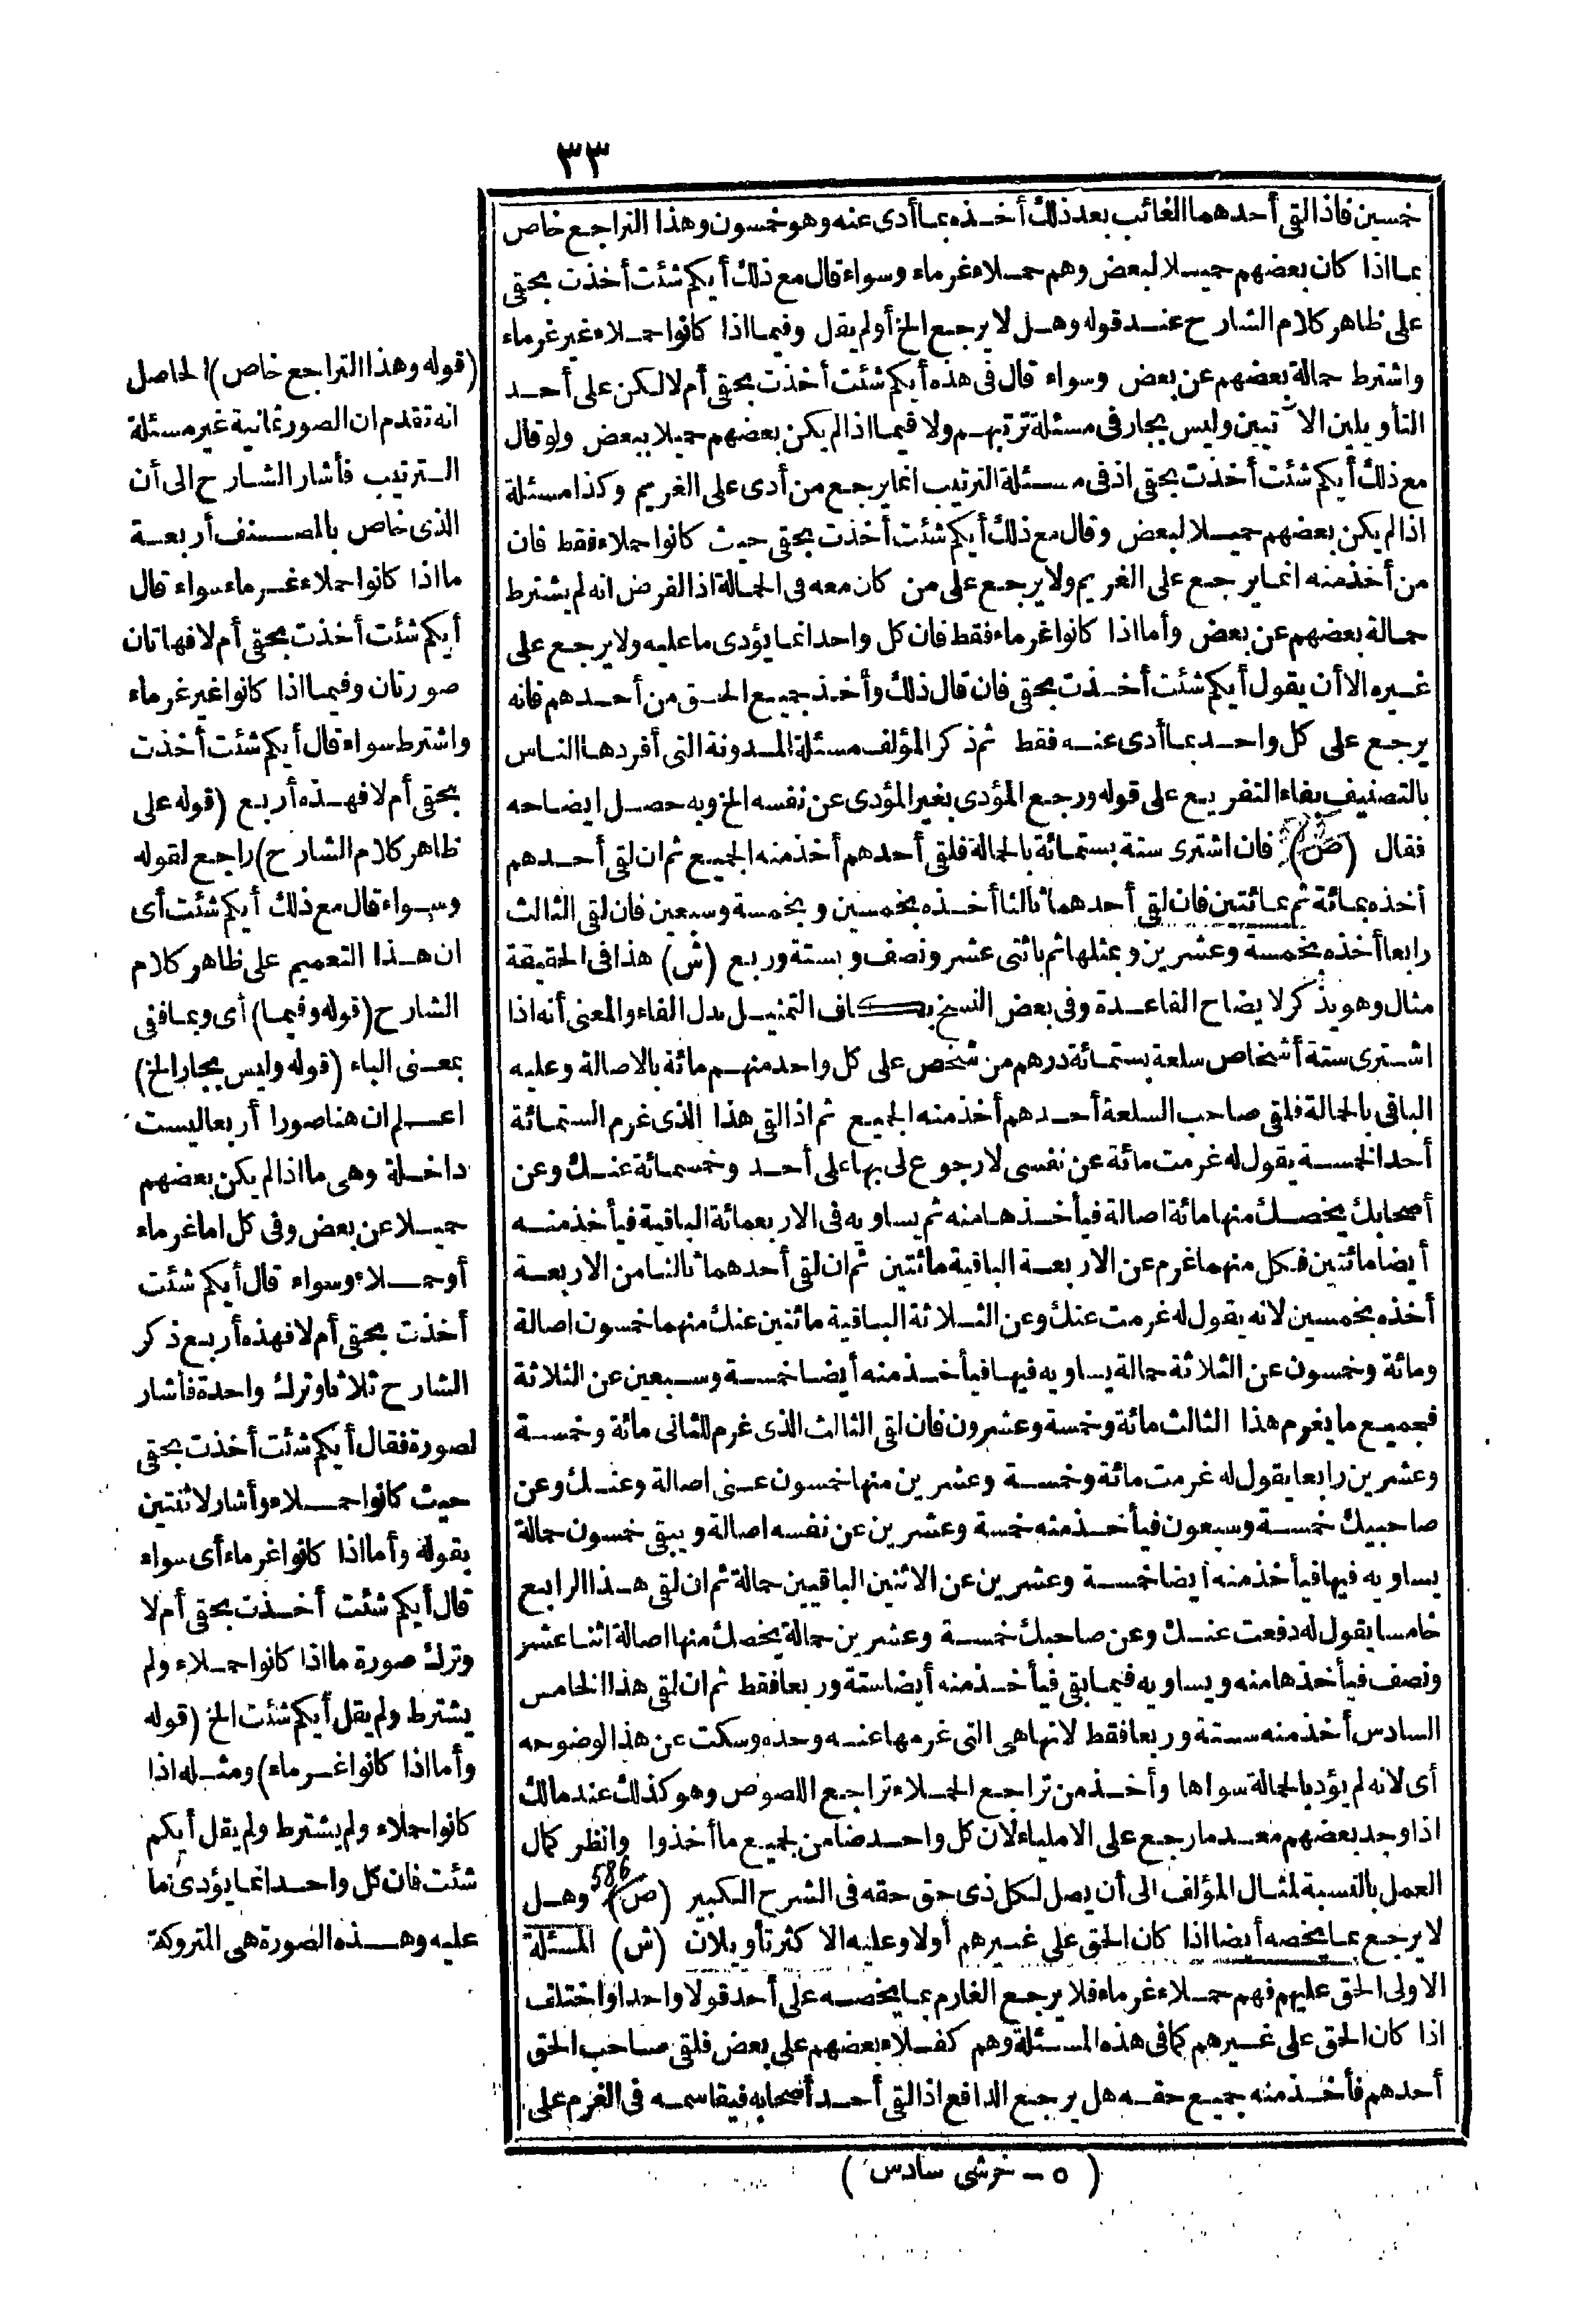 ٣٣
خمسين فاذا لقى أحدهما الغائب بعد ذلك أخذه بما أدى عنه وهو خمسون وهذا التراجع خاص
بما اذا كان بعضهم حميلا لبعض وهم حملاء غرماء وسواء قال مع ذلك أيكم شئت أخذت بحقى
على ظاهر كلام الشارح عند قوله وهل لا يرجع الخ أو لم يقل وفيما اذا كانوا حملاء غير غرماء
واشترط حمالة بعضهم عن بعض وسواء قال فى هذه أيكم شئت أخذت بحقى أم لا لكن على أحد
التأويلين الآتيين وليس بجار فى مسئلة ترتبهم ولا فيما اذا لم يكن بعضهم حميلا ببعض ولو قال
مع ذلك أيكم شئت أخذت بحقى اذ فى مسئلة الترتيب انما يرجع من أدى على الغريم وكذا مسئلة
اذا لم يكن بعضهم حميلا لبعض وقال مع ذلك أيكم شئت أخذت بحقى حيث كانوا حملاء فقط فان
من أخذ منه انما يرجع على الغريم ولا يرجع على من كان معه فى الحمالة اذ الفرض انه لم يشترط
حمالة بعضهم عن بعض وأما اذا كانوا غرماء فقط فان كل واحد انما يؤدى ما عليه ولا يرجع على
غيره الا أن يقول أيكم شئت أخذت بحقى فان قال ذلك وأخذ جميع الحق من أحدهم فانه
يرجع على كل واحد بما أدى عنه فقط ثم ذكر المؤلف مسئلة المدونة التى أفردها الناس
بالتصنيف بفاء التفريع على قوله ورجع المؤدى بغير المؤدى عن نفسه الخ وبه حصل ايضاحه
فقال (ص) فان اشترى ستة بستمائة بالحمالة فلقى أحدهم أخذ منه الجميع ثم ان لقى أحدهم
أخذه بمائة ثم بمائتين فان لقى أحدهما ثالثا أخذه بخمسين وبخمسة وسبعين فان لقى الثالث
رابعا أخذه بخمسة وعشرين وبمثلها ثم باثنى عشر ونصف وبستة وربع (ش) هذا فى الحقيقة
مثال وهو يذكر لايضاح القاعدة وفى بعض النسخ بكاف التمثيل بدل الفاء والمعنى أنه اذا
اشترى ستة أشخاص سلعة بستمائة درهم من شخص على كل واحد منهم مائة بالاصالة وعليه
الباقى بالحمالة فلقى صاحب السلعة أحدهم أخذ منه الجميع ثم اذا لقى هذا الذى غرم الستمائة
أحد الخمسة يقول له غرمت مائة عن نفسى لا رجوع لى بها على أحد وخمسمائة عنك وعن
أصحابك يخصك منها مائة اصالة فيأخذها منه ثم يساويه فى الاربعمائة الباقية فيأخذ منه
أيضا مائتين فكل منهما غرم عن الاربعة الباقية مائتين ثم ان لقى أحدهما ثالثا من الاربعة
أخذه بخمسين لانه يقول له غرمت عنك وعن الثلاثة الباقية مائتين عنك منهما خمسون اصالة
ومائة وخمسون عن الثلاثة حمالة يساويه فيها فيأخذ منه أيضا خمسة وسبعين عن الثلاثة
فجميع ما يغرم هذا الثالث مائة وخمسة وعشرون فان لقى الثالث الذى غرم للثانى مائة وخمسة
وعشرين رابعا يقول له غرمت مائة وخمسة وعشرين منها خمسون عنى اصالة وعنك وعن
صاحبيك خمسة وسبعون فيأخذ منه خمسة وعشرين عن نفسه اصالة ويبقى خمسون حمالة
يساويه فيها فيأخذ منه أيضا خمسة وعشرين عن الاثنين الباقيين حمالة ثم ان لقى هذا الرابع
خامسا يقول له دفعت عنك وعن صاحبك خمسة وعشرين حمالة يخصك منها اصالة اثنا عشر
ونصف فيأخذها منه ويساويه فيما بقى فيأخذ منه أيضا ستة وربعا فقط ثم ان لقى هذا الخامس
السادس أخذ منه ستة وربعا فقط لانها هى التى غرمها عنه وحده وسكت عن هذا لوضوحه
أى لانه لم يؤد بالحمالة سواها وأخذ من تراجع الحملاء تراجع اللصوص وهو كذلك عند مالك
اذا وجد بعضهم معدما رجع على الاملياء لان كل واحد ضامن لجميع ما أخذوا وانظر كمال
العمل بالنسبة لمثال المؤلف الى أن يصل لكل ذى حق حقه فى الشرح الكبير (ص) 586 وهل
لا يرجع بما يخصه أيضا اذا كان الحق على غيرهم أو لا وعليه الاكثر تأويلان (ش) المسئلة
الاولى الحق عليهم فهم حملاء غرماء فلا يرجع الغارم بما يخصه على أحد قولا واحدا واختلف
اذا كان الحق على غيرهم كما فى هذه المسئلة وهم كفلاء بعضهم على بعض فلقى صاحب الحق
أحدهم فأخذ منه جميع حقه هل يرجع الدافع اذا لقى أحد أصحابه فيقاسمه فى الغرم على
(قوله وهذا التراجع خاص) الحاصل
انه تقدم ان الصور ثمانية غير مسئلة
الترتيب فأشار الشارح الى أن
الذى خاص بالمصنف أربعة
ما اذا كانوا حملاء غرماء سواء قال
أيكم شئت أخذت بحقى أم لا فهاتان
صورتان وفيما اذا كانوا غير غرماء
واشترط سواء قال أيكم شئت أخذت
بحقى أم لا فهذه أربع (قوله على
ظاهر كلام الشارح) راجع لقوله
وسواء قال مع ذلك أيكم شئت أى
ان هذا التعميم على ظاهر كلام
الشارح (قوله وفيما) أى وبما ففى
بمعنى الباء (قوله وليس بجار الخ)
اعلم ان هنا صورا أربعا ليست
داخلة وهى ما اذا لم يكن بعضهم
حميلا عن بعض وفى كل اما غرماء
أو حملاء وسواء قال أيكم شئت
أخذت بحقى أم لا فهذه أربع ذكر
الشارح ثلاثا وترك واحدة فأشار
لصورة فقال أيكم شئت أخذت بحقى
حيث كانوا حملاء وأشار لاثنتين
بقوله وأما اذا كانوا غرماء أى سواء
قال أيكم شئت أخذت بحقى أم لا
وترك صورة ما اذا كانوا حملاء ولم
يشترط ولم يقل أيكم شئت الخ (قوله
وأما اذا كانوا غرماء) ومثله اذا
كانوا حملاء ولم يشترط ولم يقل أيكم
شئت فان كل واحد انما يؤدى ما
عليه وهذه الصورة هى المتروكة
(٥ - خرشى سادس)